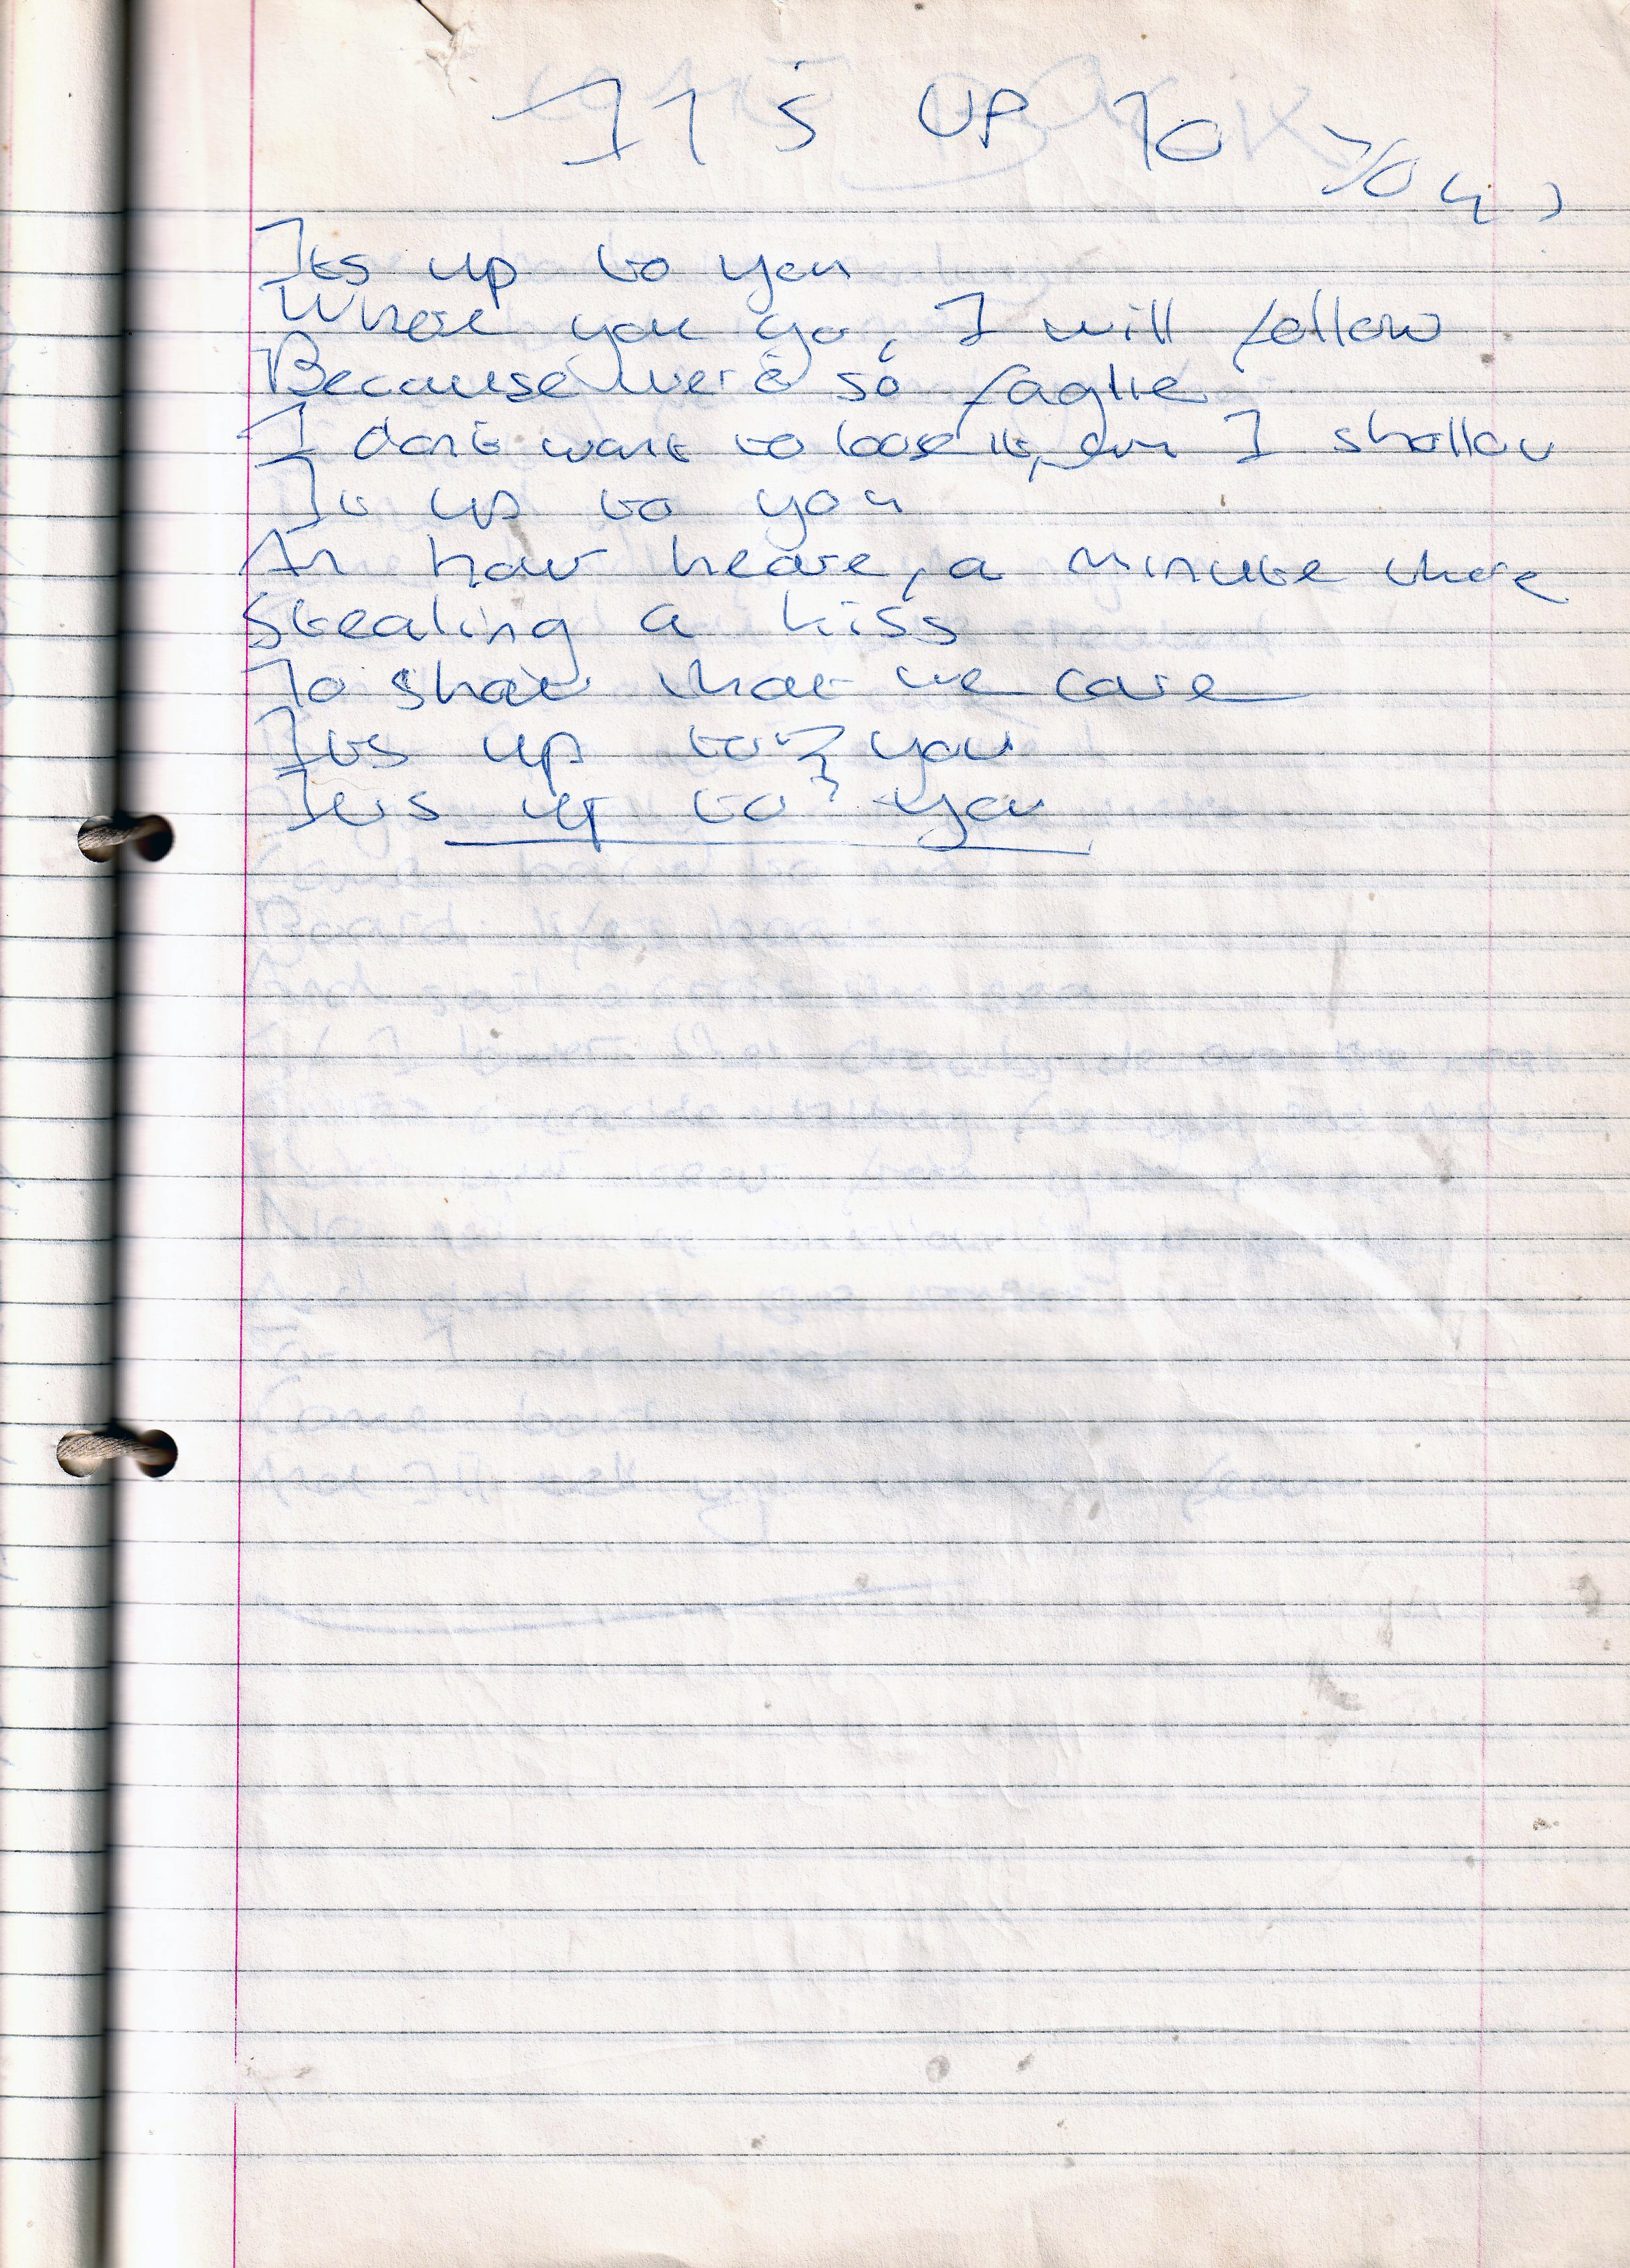 IT'S UP TO YOU,
Its up to you
Where you go, I will follow
Because we're so faglie
I dont want to loose it, am I shallow
It up to you
An hour heare, a minute there
Stealing a kiss
To show that we care
Its up to you
Its up to you